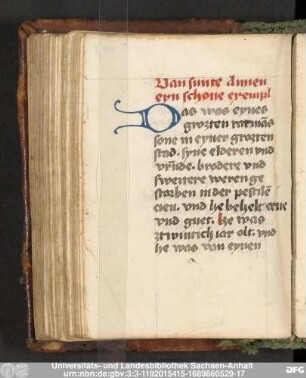 Uan sunte Annen
eyn schone exempl
Das was eynes
grozten ratmās
sone in eyner grozten
stad. syne elderen vnd
vrūde. brodere vnd
swestere weren ge
storben in der pestilē
cien. vnd he behelt erue
vnd guet. he was
ztwintich iar olt. vnd
he was van eynen
Universitäts- und Landesbibliothek Sachsen-Anhalt
urn:nbn:de:gbv:3:3-1192015415-1689860529-17
DFG